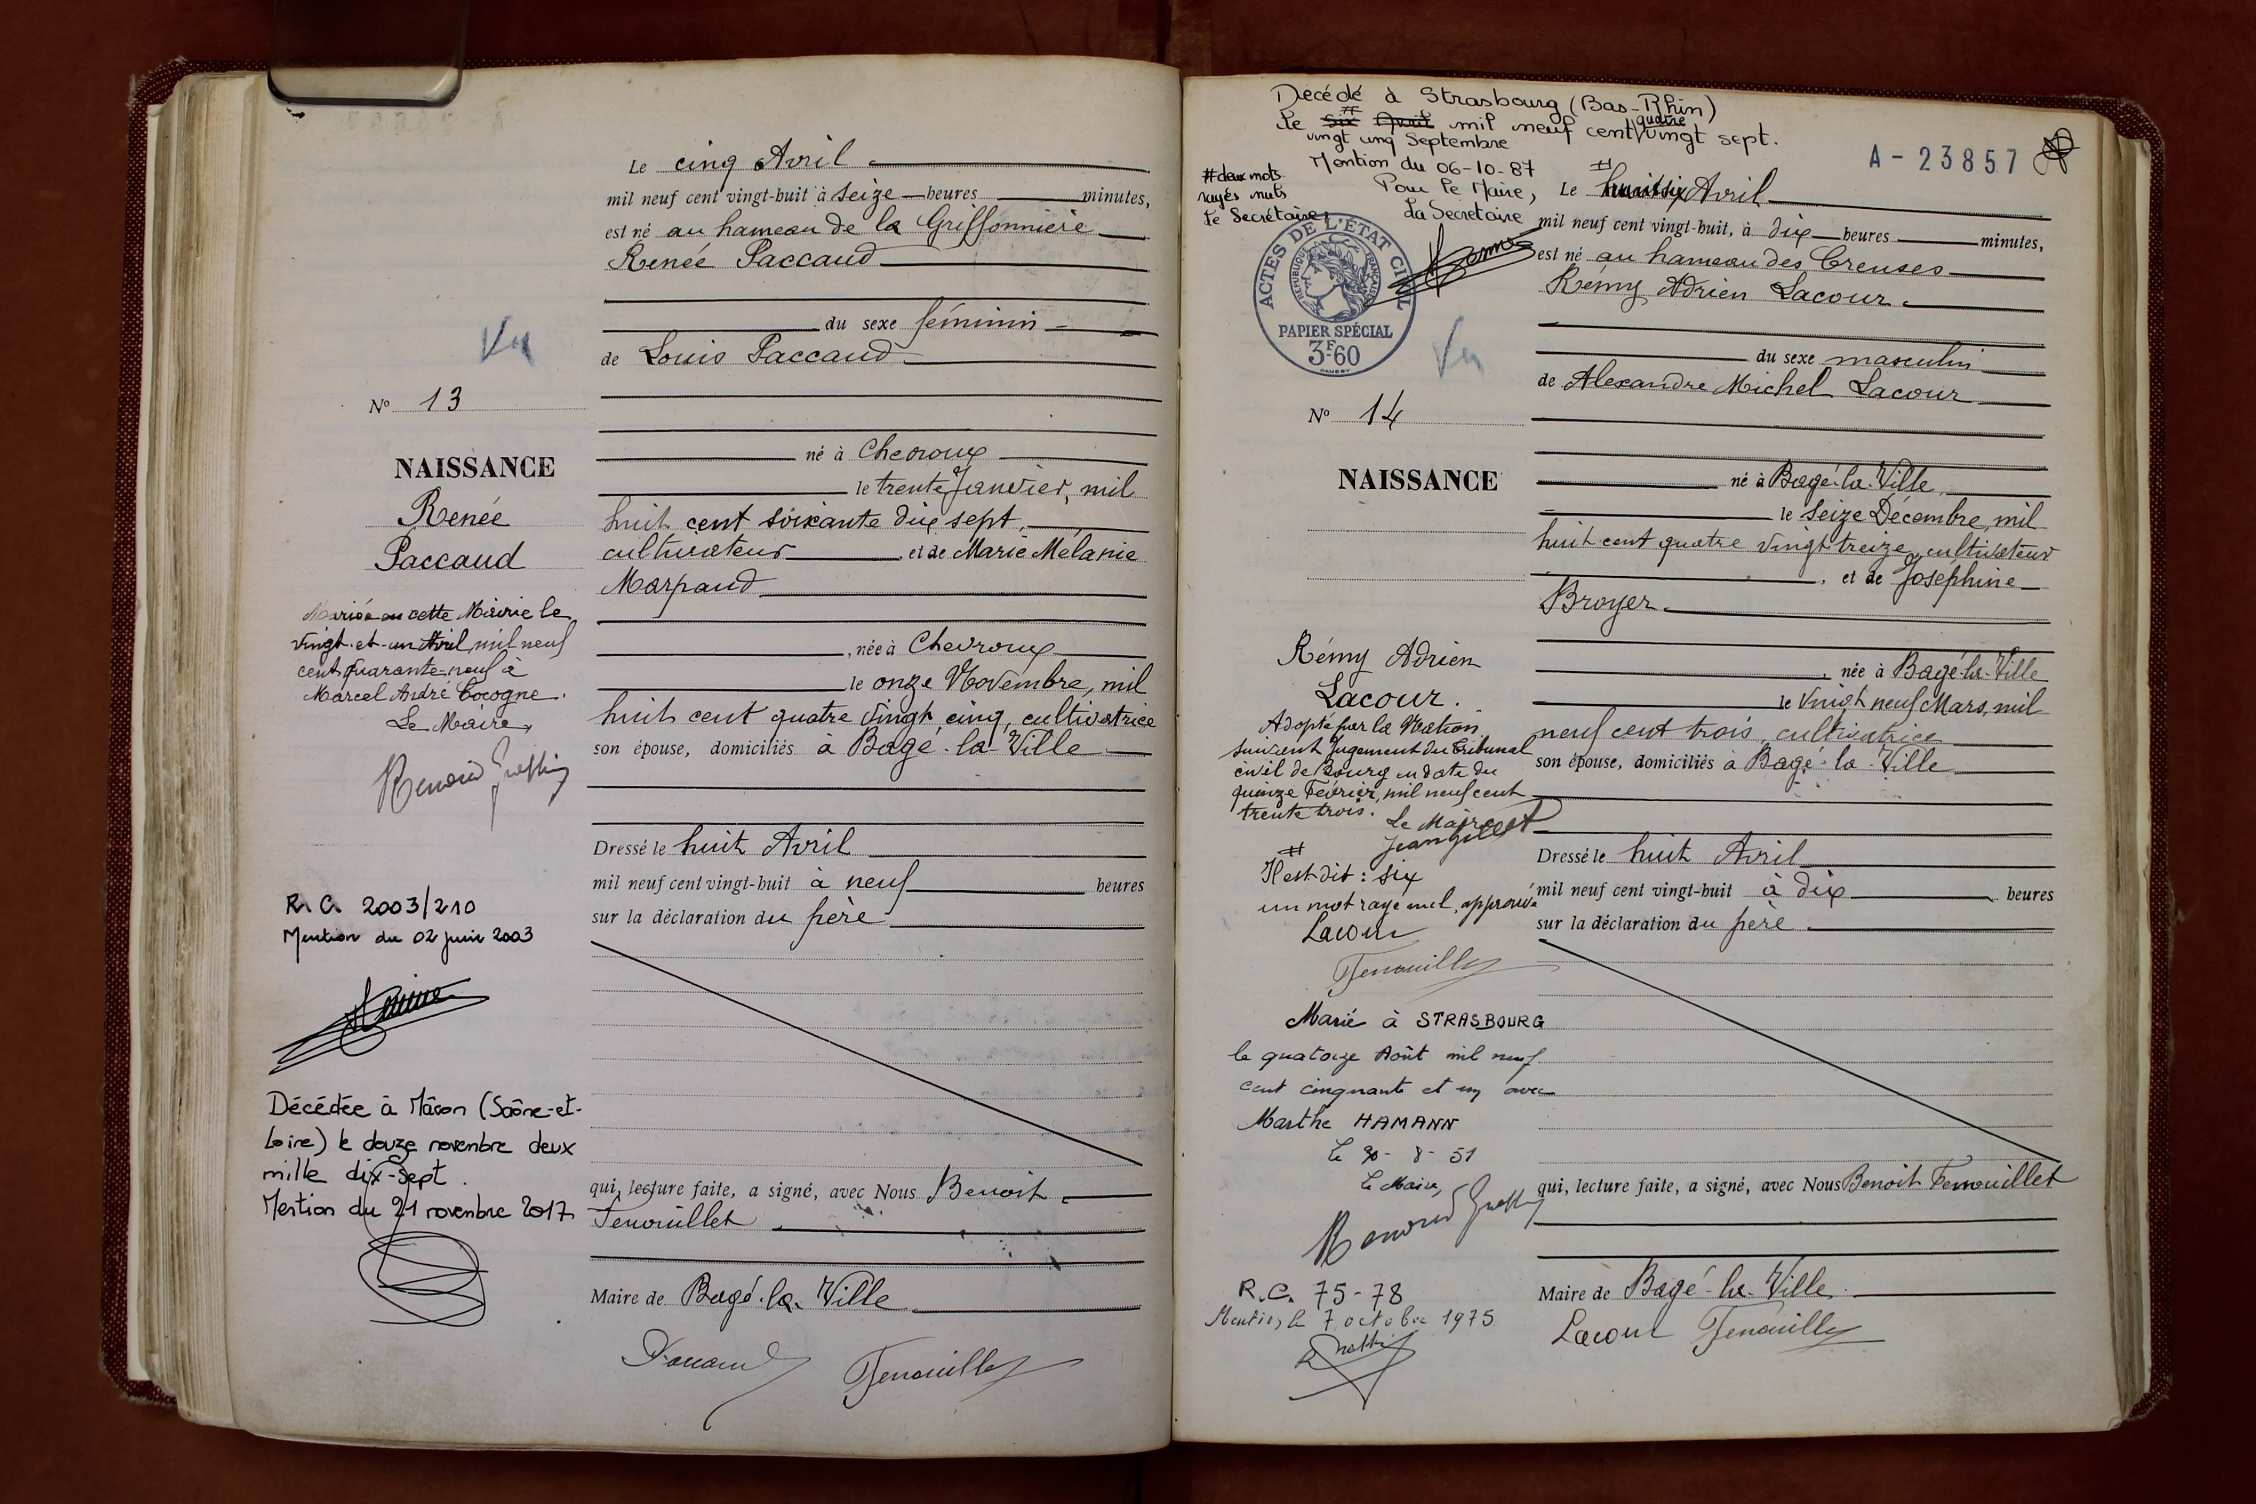 Le cinq Avril
mil neuf cent vingt-huit à seize heures minutes,
est né au hameau de la Griffonnière
Renée Paccaud
du sexe féminin
de Louis Paccaud
Vu
No 13
né à Chevroux
NAISSANCE
le trente Janvier, mil
Renée
huit cent soixante dix sept,
Paccaud
cultivateur et de Marie Mélanie
Marpaud
Mariée en cette Mairie le
vingt-et-un Avril mil neuf
cent quarante-neuf à
Marcel André Cocogne.
Le Maire,
, née à Chevroux
le onze Novembre, mil
huit cent quatre vingt cinq, cultivatrice
son épouse, domiciliés à Bagé-la-Ville
Dressé le huit Avril
mil neuf cent vingt-huit à neuf heures
sur la déclaration du père
R.C. 2003/210
Mention du 02 juin 2003
Décédée à Mâcon (Saône-et-
Loire) le douze novembre deux
mille dix-sept.
Mention du 21 novembre 2017
qui, lecture faite, a signé, avec Nous Benoit
Fenouillet
Maire de Bagé-la-Ville
Paccaud Fenouillet
Decédé à Strasbourg (Bas-Rhin)
Le # Six Avril mil neuf cent quatre vingt sept.
vingt cinq Septembre
Mention du 06-10-87
Pour le Maire,
La Secretaire
# deux mots
rayés nuls
Le Secrétaire,
A-23857
ACTES DE L'ÉTAT CIVIL
RÉPUBLIQUE FRANÇAISE
PAPIER SPÉCIAL
3F60
#
Le huit six Avril
mil neuf cent vingt-huit, à dix heures minutes,
est né au hameau des Creuses
Rémy Adrien Lacour
du sexe masculin
de Alexandre Michel Lacour
Vu
No 14
NAISSANCE
né à Bagé-la-Ville
le seize Décembre, mil
huit cent quatre vingt treize, cultivateur
, et de Joséphine
Broyer
Rémy Adrien
Lacour.
, née à Bagé-la-Ville
le vingt neuf Mars, mil
neuf cent trois, cultivatrice
son épouse, domiciliés à Bagé-la-Ville
Adopté par la Nation
suivant Jugement du Tribunal
civil de Bourg en date du
quinze Février, mil neuf cent
trente trois.
Le Maire
#
Il est dit : six
un mot rayé nul, approuvé
Lacour
Fenouillet
Dressé le huit Avril
mil neuf cent vingt-huit à dix heures
sur la déclaration du père
Marié à STRASBOURG
le quatorze Août mil neuf
cent cinquante et un avec
Marthe HAMANN
Le 30-8-51
Le Maire,
R.C. 75-78
Mention le 7 octobre 1975
qui, lecture faite, a signé, avec Nous Benoit Fenouillet
Maire de Bagé-la-Ville
Lacour Fenouillet